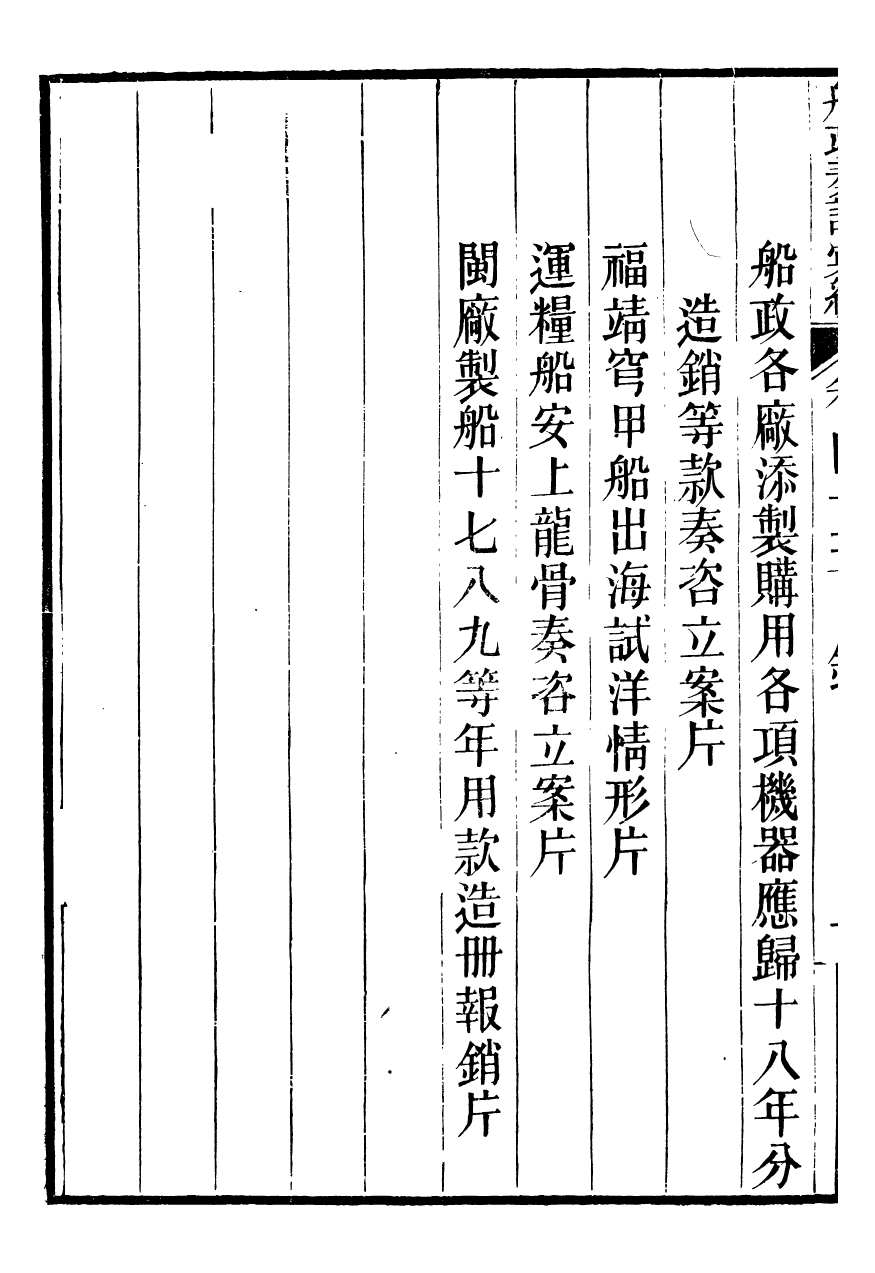 船政各廠添製購用各項機器應歸十八年分
造銷等款奏咨立案片
福靖穹甲船出海試洋情形片
運糧船安上龍骨奏咨立案片
閩廠製船十七八九等年用款造冊報銷片